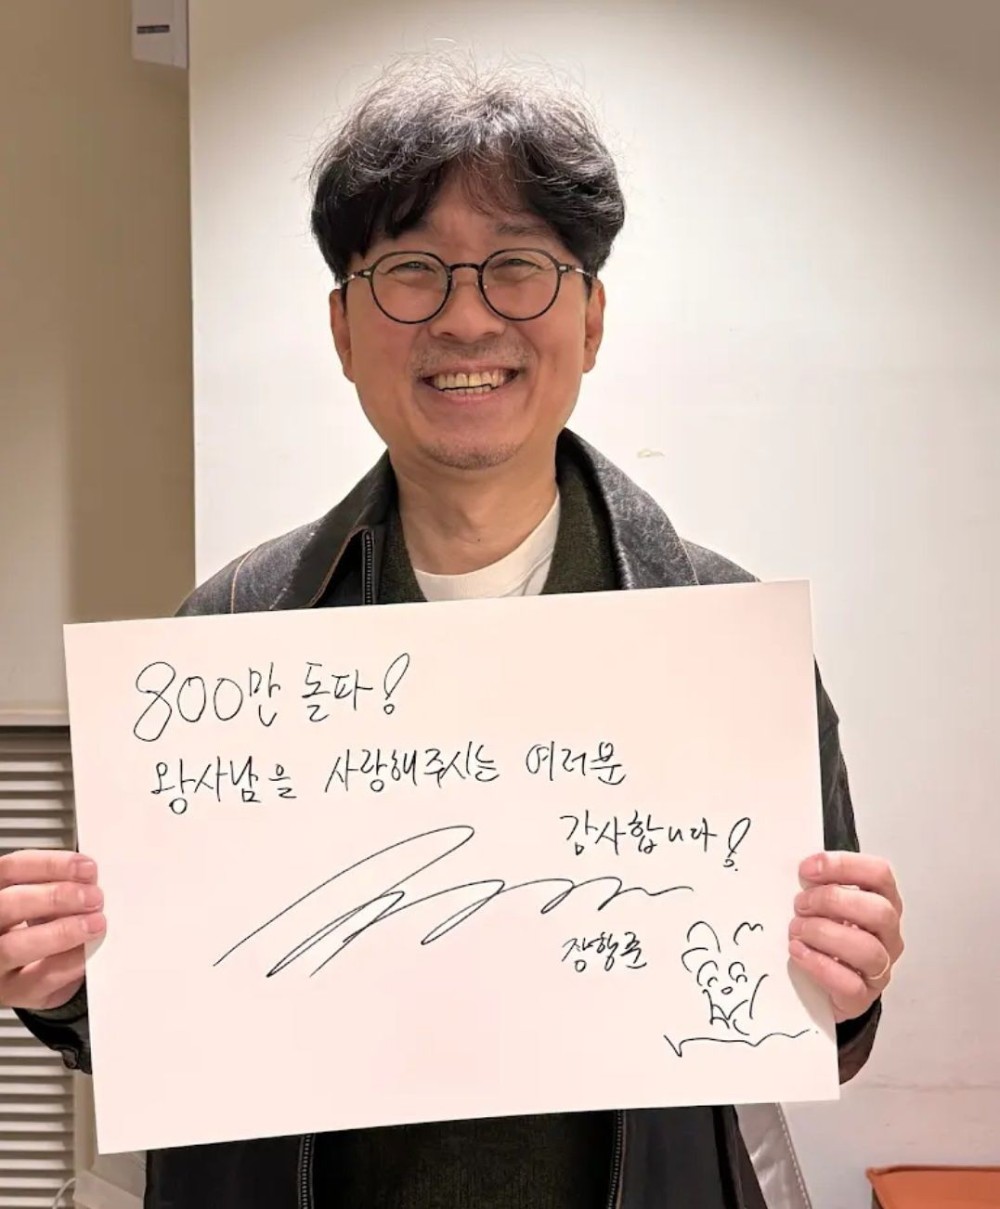 800만 돌파!
왕사남을 사랑해주시는 여러분
감사합니다!
장항준